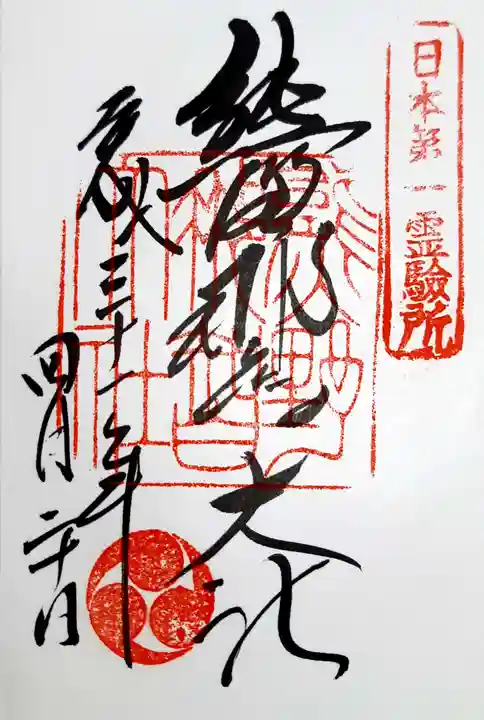 日本第一霊験所
熊野那智大社
平成三十一年
四月二十日